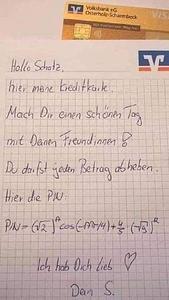 Volksbank eG
Osterholz-Scharmbeck
VIS
Hallo Schatz,
hier meine Kreditkarte.
Mach Dir einen schönen Tag
mit Deinen Freundinnen!
Du darfst jeden Betrag abheben.
Hier die PIN:
Ich hab Dich lieb ♡
Dein S.